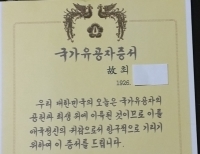 국가유공자증서
故 최
1926.
우리 대한민국의 오늘은 국가유공자의
공헌과 희생 위에 이룩된 것이므로 이를
애국정신의 귀감으로서 항구적으로 기리기
위하여 이 증서를 드립니다.